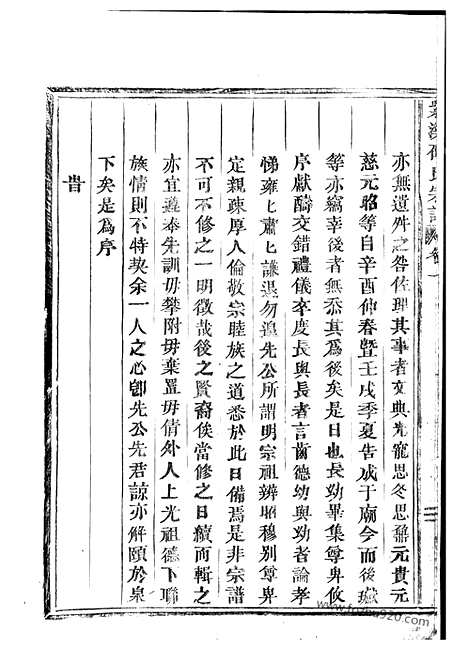 亦無遺舛之咎佐理其事者文典光寵思冬思鼐元貴元
慈元昭等自辛酉仲春暨壬戌季夏告成于廟今而後璈
等亦竊幸後者無忝其為後矣是日也長幼畢集尊卑攸
序獻酬交錯禮儀卒度長與長者言齒德幼與幼者論孝
悌雍匕肅匕謙退勿遑先公所謂明宗祖辨昭穆別尊卑
定親疎厚人倫敬宗睦族之道悉於此日備焉是非宗譜
不可不修之一明徵哉後之賢裔俟當修之日續而輯之
亦宜遵奉先訓毋攀附毋棄置毋倩外人上光祖德下聯
族情則不特契余一人之心卽先公先君諒亦解頤於泉
下矣是為序
旹
氏宗譜 卷一
www.fozhu920.com